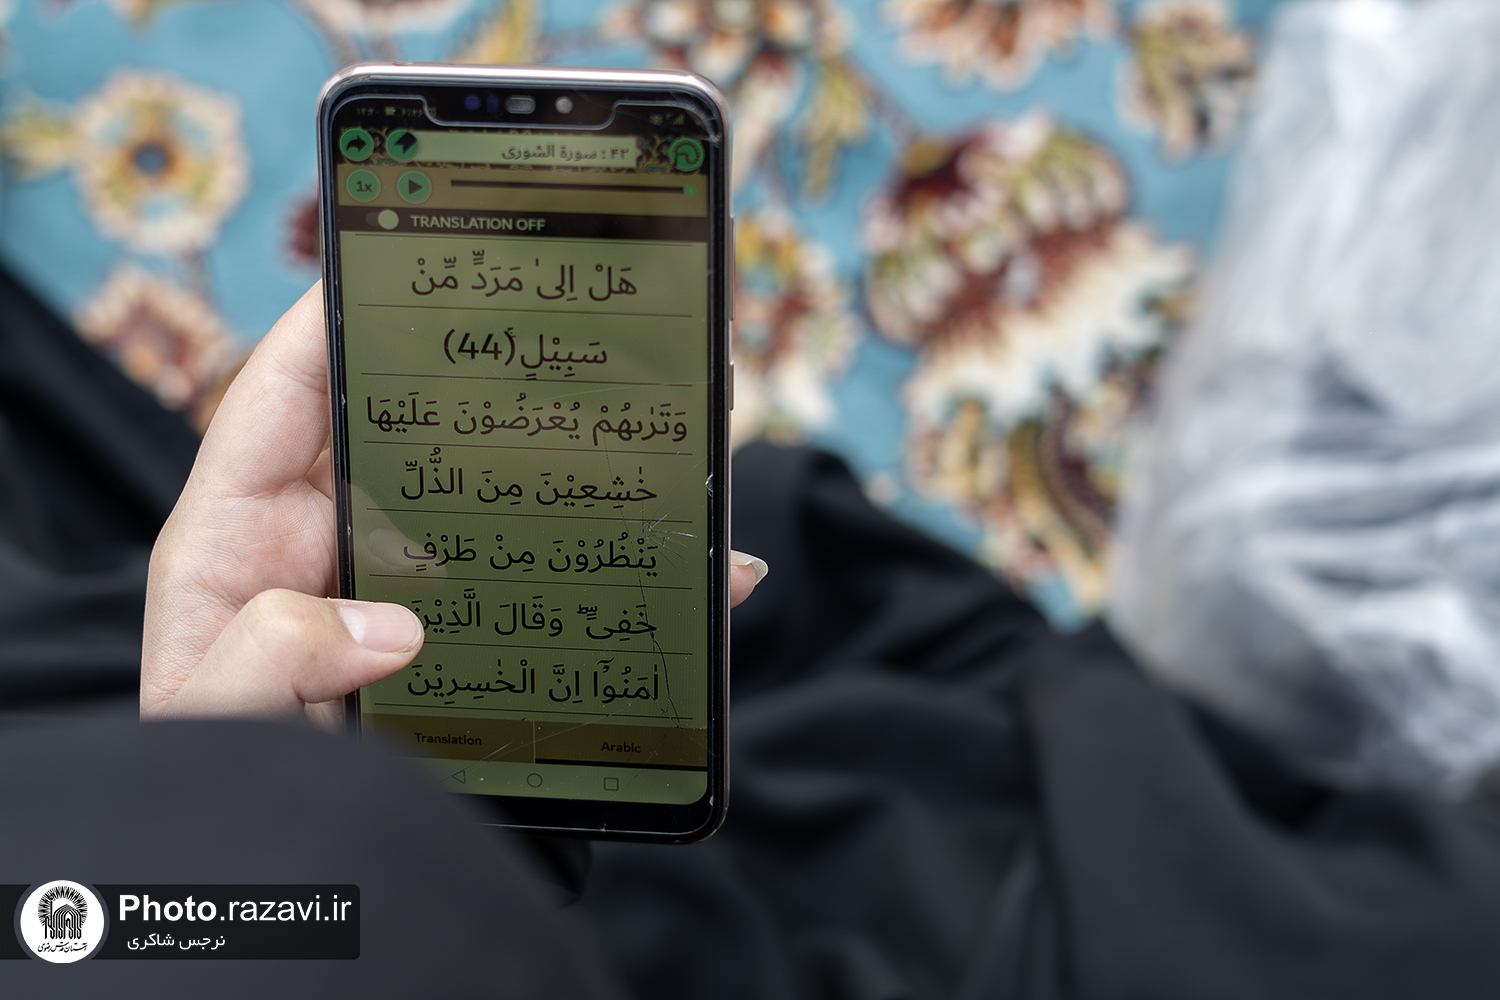 ۴۲ : سورة الشورى
1x
TRANSLATION OFF
هَلْ اِلىٰ مَرَدٍّ مِّنْ
سَبِيْلٍۚ(44)
وَتَرٰىهُمْ يُعْرَضُوْنَ عَلَيْهَا
خٰشِعِيْنَ مِنَ الذُّلِّ
يَنْظُرُوْنَ مِنْ طَرْفٍ
خَفِىٍّؕ وَقَالَ الَّذِيْنَ
اٰمَنُوْۤا اِنَّ الْخٰسِرِيْنَ
Translation
Arabic
Photo.razavi.ir
نرجس شاکری